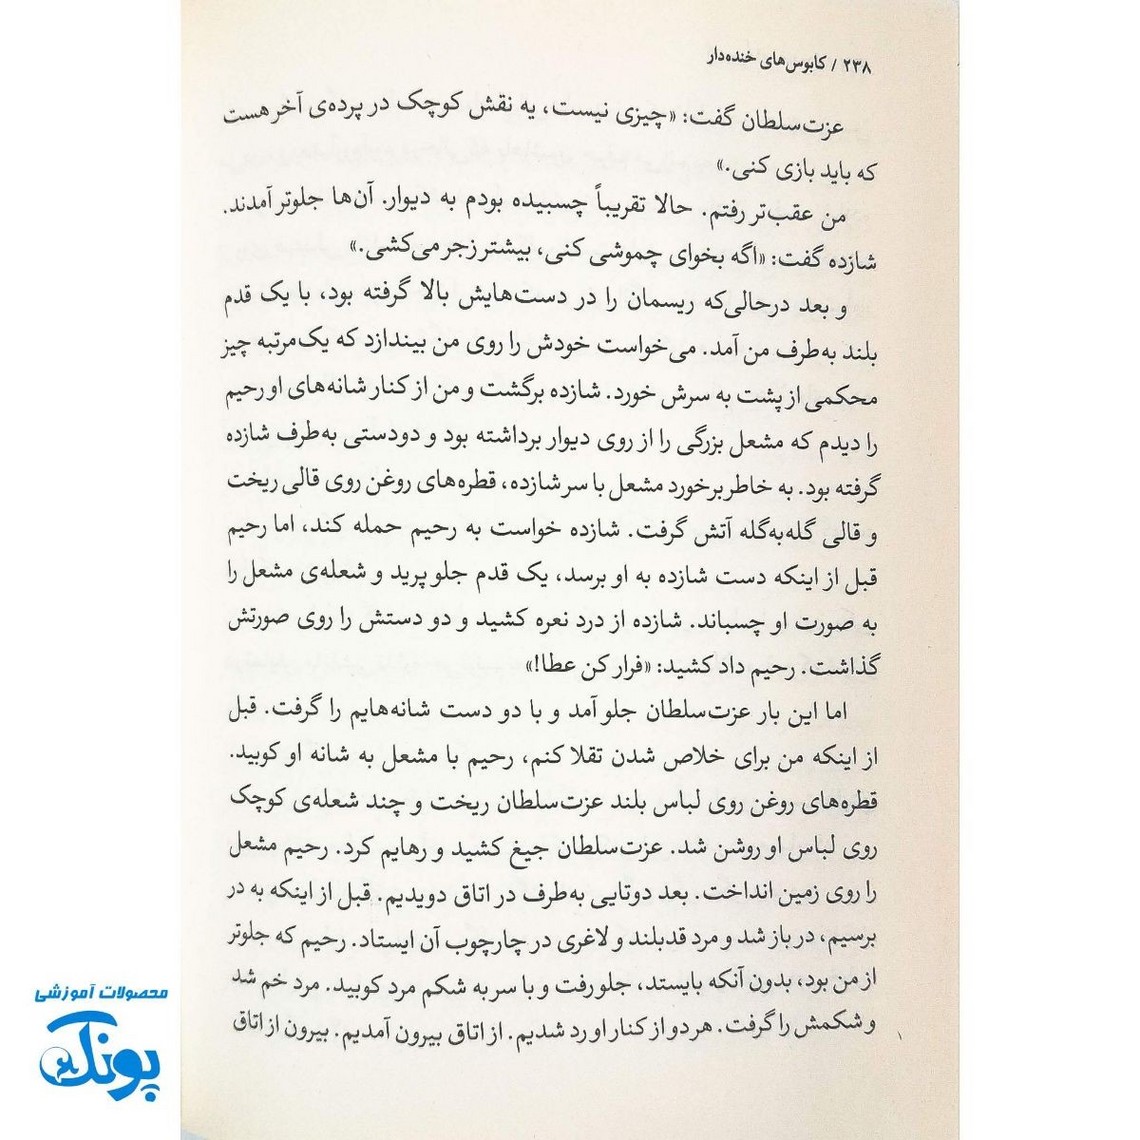 ۲۳۸ / کابوس‌های خنده‌دار
عزت‌سلطان گفت: «چیزی نیست، یه نقش کوچک در پرده‌ی آخر هست
که باید بازی کنی.»
من عقب‌تر رفتم. حالا تقریباً چسبیده بودم به دیوار. آن‌ها جلوتر آمدند.
شازده گفت: «اگه بخوای چموشی کنی، بیشتر زجر می‌کشی.»
و بعد درحالی‌که ریسمان را در دست‌هایش بالا گرفته بود، با یک قدم
بلند به‌طرف من آمد. می‌خواست خودش را روی من بیندازد که یک‌مرتبه چیز
محکمی از پشت به سرش خورد. شازده برگشت و من از کنار شانه‌های او رحیم
را دیدم که مشعل بزرگی را از روی دیوار برداشته بود و دودستی به‌طرف شازده
گرفته بود. به خاطر برخورد مشعل با سر شازده، قطره‌های روغن روی قالی ریخت
و قالی گله‌به‌گله آتش گرفت. شازده خواست به رحیم حمله کند، اما رحیم
قبل از اینکه دست شازده به او برسد، یک قدم جلو پرید و شعله‌ی مشعل را
به صورت او چسباند. شازده از درد نعره کشید و دو دستش را روی صورتش
گذاشت. رحیم داد کشید: «فرار کن عطا!»
اما این بار عزت‌سلطان جلو آمد و با دو دست شانه‌هایم را گرفت. قبل
از اینکه من برای خلاص شدن تقلا کنم، رحیم با مشعل به شانه او کوبید.
قطره‌های روغن روی لباس بلند عزت‌سلطان ریخت و چند شعله‌ی کوچک
روی لباس او روشن شد. عزت‌سلطان جیغ کشید و رهایم کرد. رحیم مشعل
را روی زمین انداخت. بعد دوتایی به‌طرف در اتاق دویدیم. قبل از اینکه به در
برسیم، در باز شد و مرد قدبلند و لاغری در چارچوب آن ایستاد. رحیم که جلوتر
از من بود، بدون آنکه بایستد، جلو رفت و با سر به شکم مرد کوبید. مرد خم شد
و شکمش را گرفت. هر دو از کنار او رد شدیم. از اتاق بیرون آمدیم. بیرون از اتاق
محصولات آموزشی
پونک